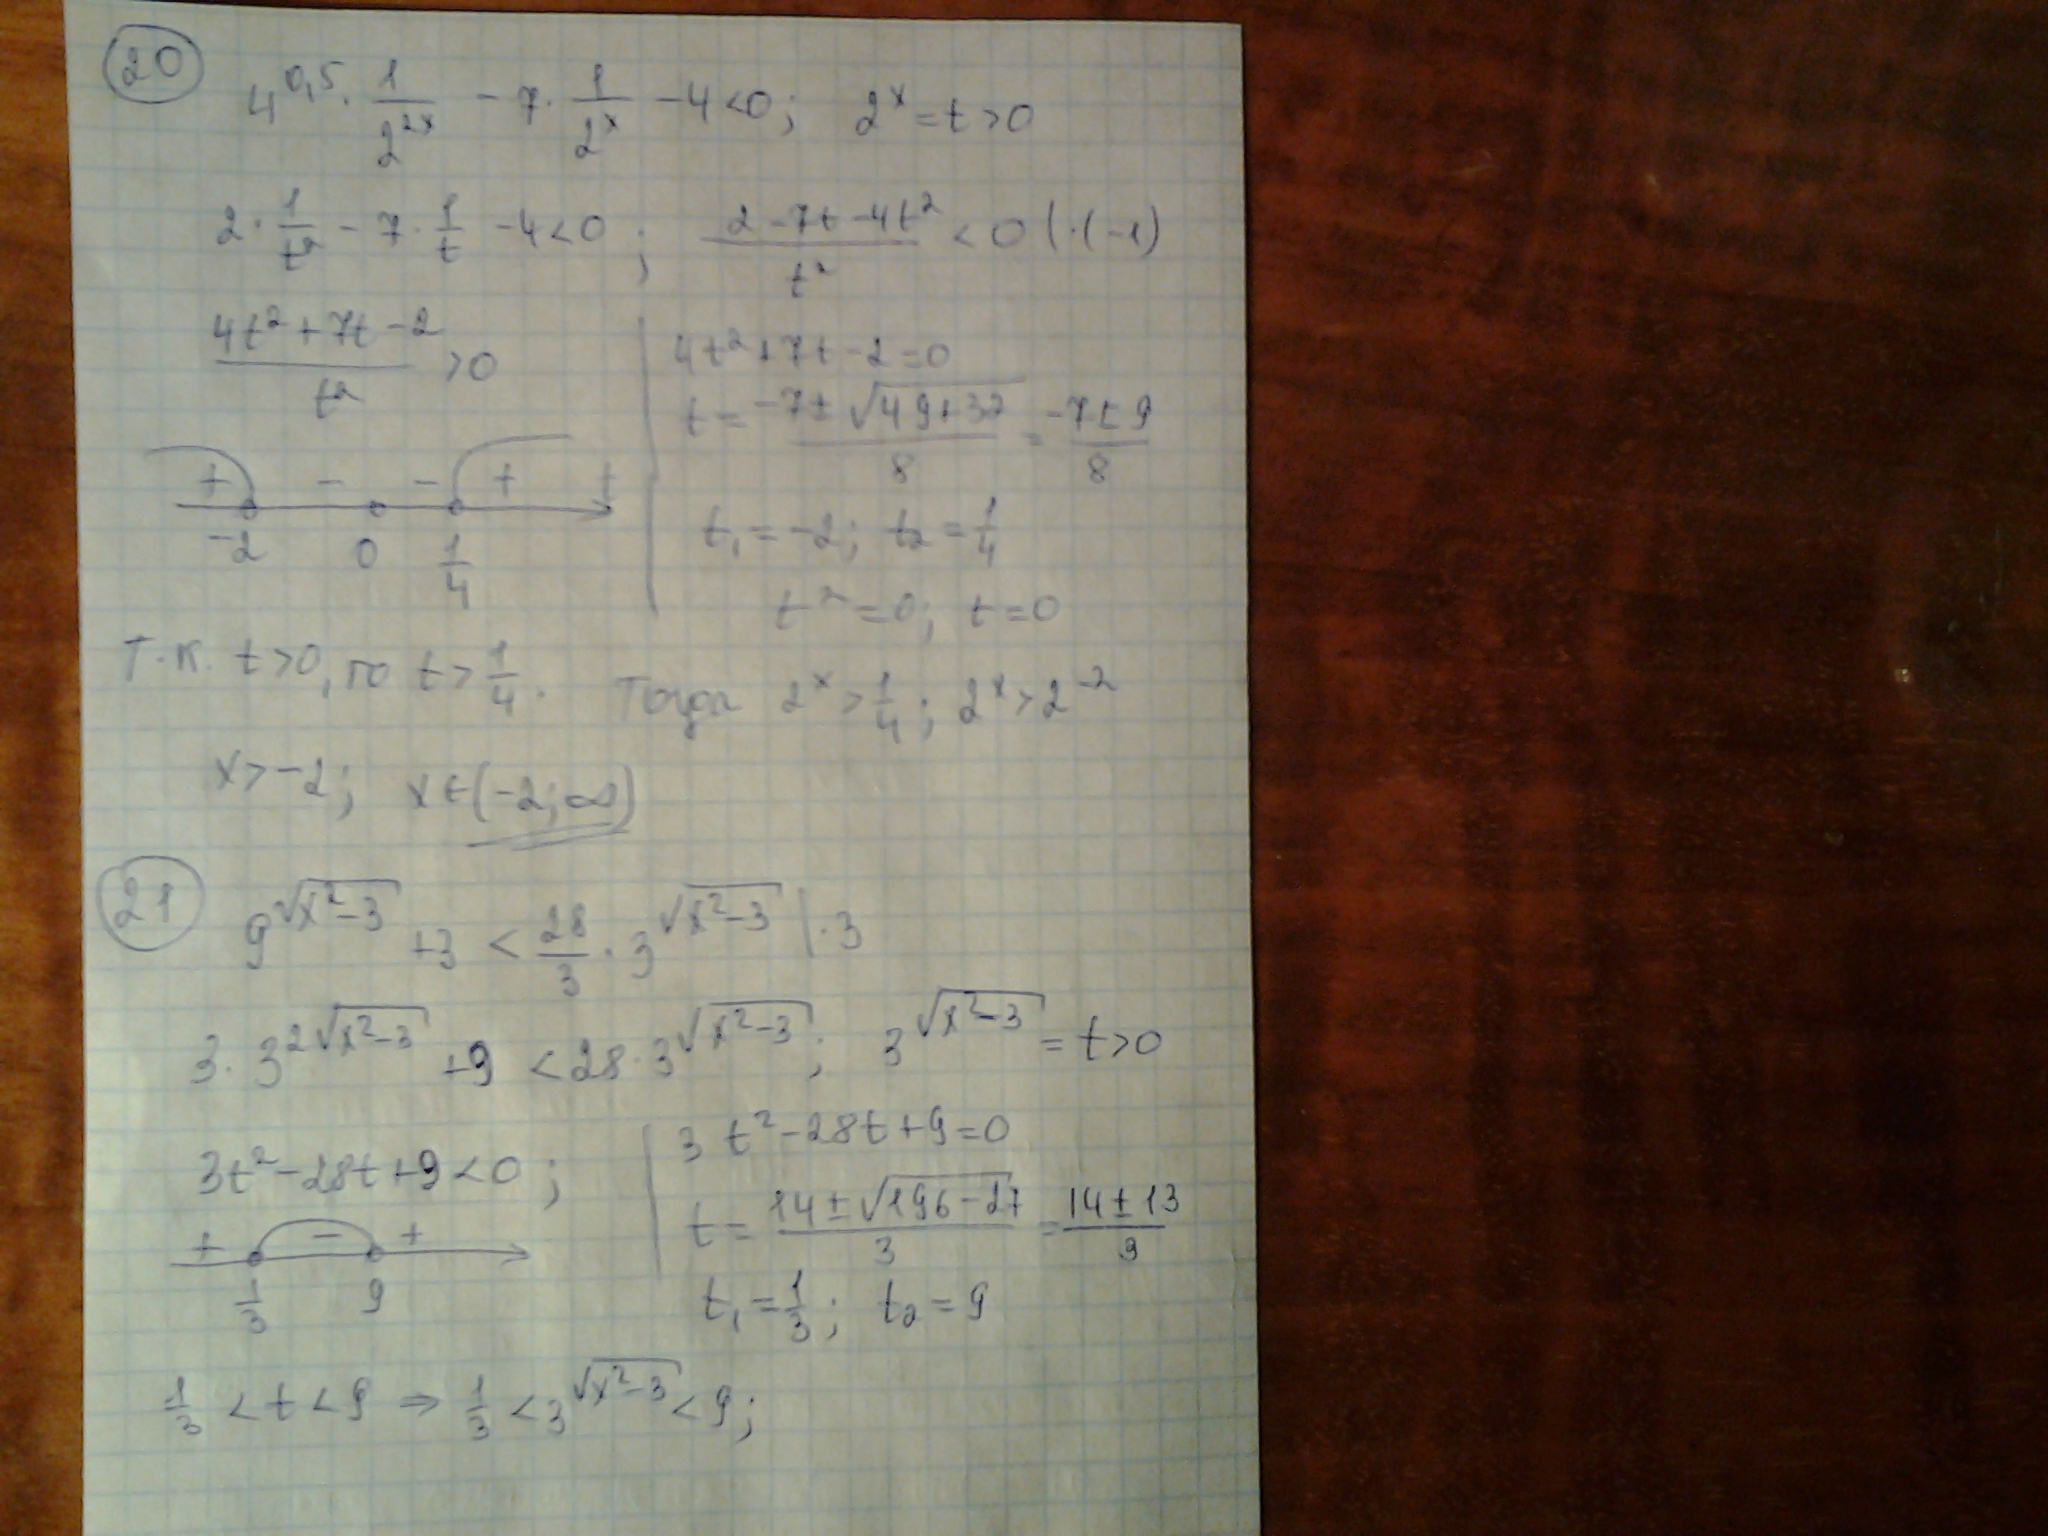 20
4^{0,5} · 1/2^{2x} - 7 · 1/2^x - 4 < 0; 2^x = t > 0
2 · 1/t² - 7 · 1/t - 4 < 0; (2 - 7t - 4t²)/t² < 0 | · (-1)
(4t² + 7t - 2)/t² > 0
4t² + 7t - 2 = 0
t = (-7 ± √(49 + 32))/8 = (-7 ± 9)/8
+ - - + +
-2 0 1/4
t₁ = -2; t₂ = 1/4
t² = 0; t = 0
Т.к. t > 0, то t > 1/4. Тогда 2^x > 1/4; 2^x > 2^{-2}
x > -2; x ∈ (-2; ∞)
21
9^{√(x²-3)} + 3 < 28/3 · 3^{√(x²-3)} | · 3
3 · 3^{2√(x²-3)} + 9 < 28 · 3^{√(x²-3)}; 3^{√(x²-3)} = t > 0
3t² - 28t + 9 < 0;
3t² - 28t + 9 = 0
t = (14 ± √(196 - 27))/3 = (14 ± 13)/3
+ - +
1/3 9
t₁ = 1/3; t₂ = 9
1/3 < t < 9 ⇒ 1/3 < 3^{√(x²-3)} < 9;